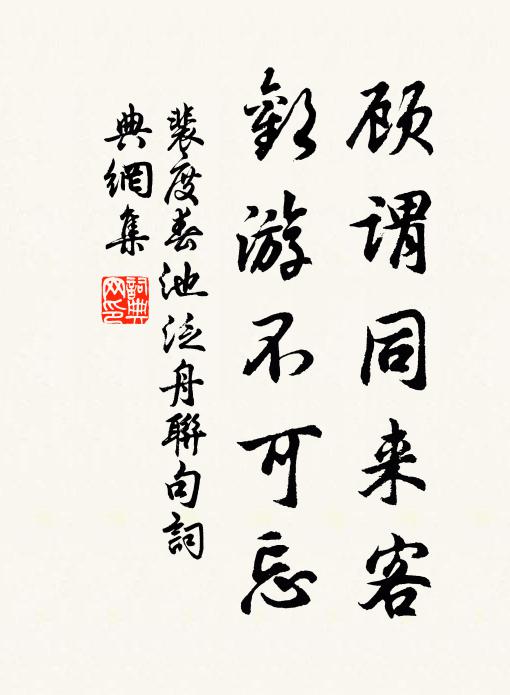 顾谓同来客
歡游不可忘
裴度春池泛舟聯句詞
典網集
詞典
网印